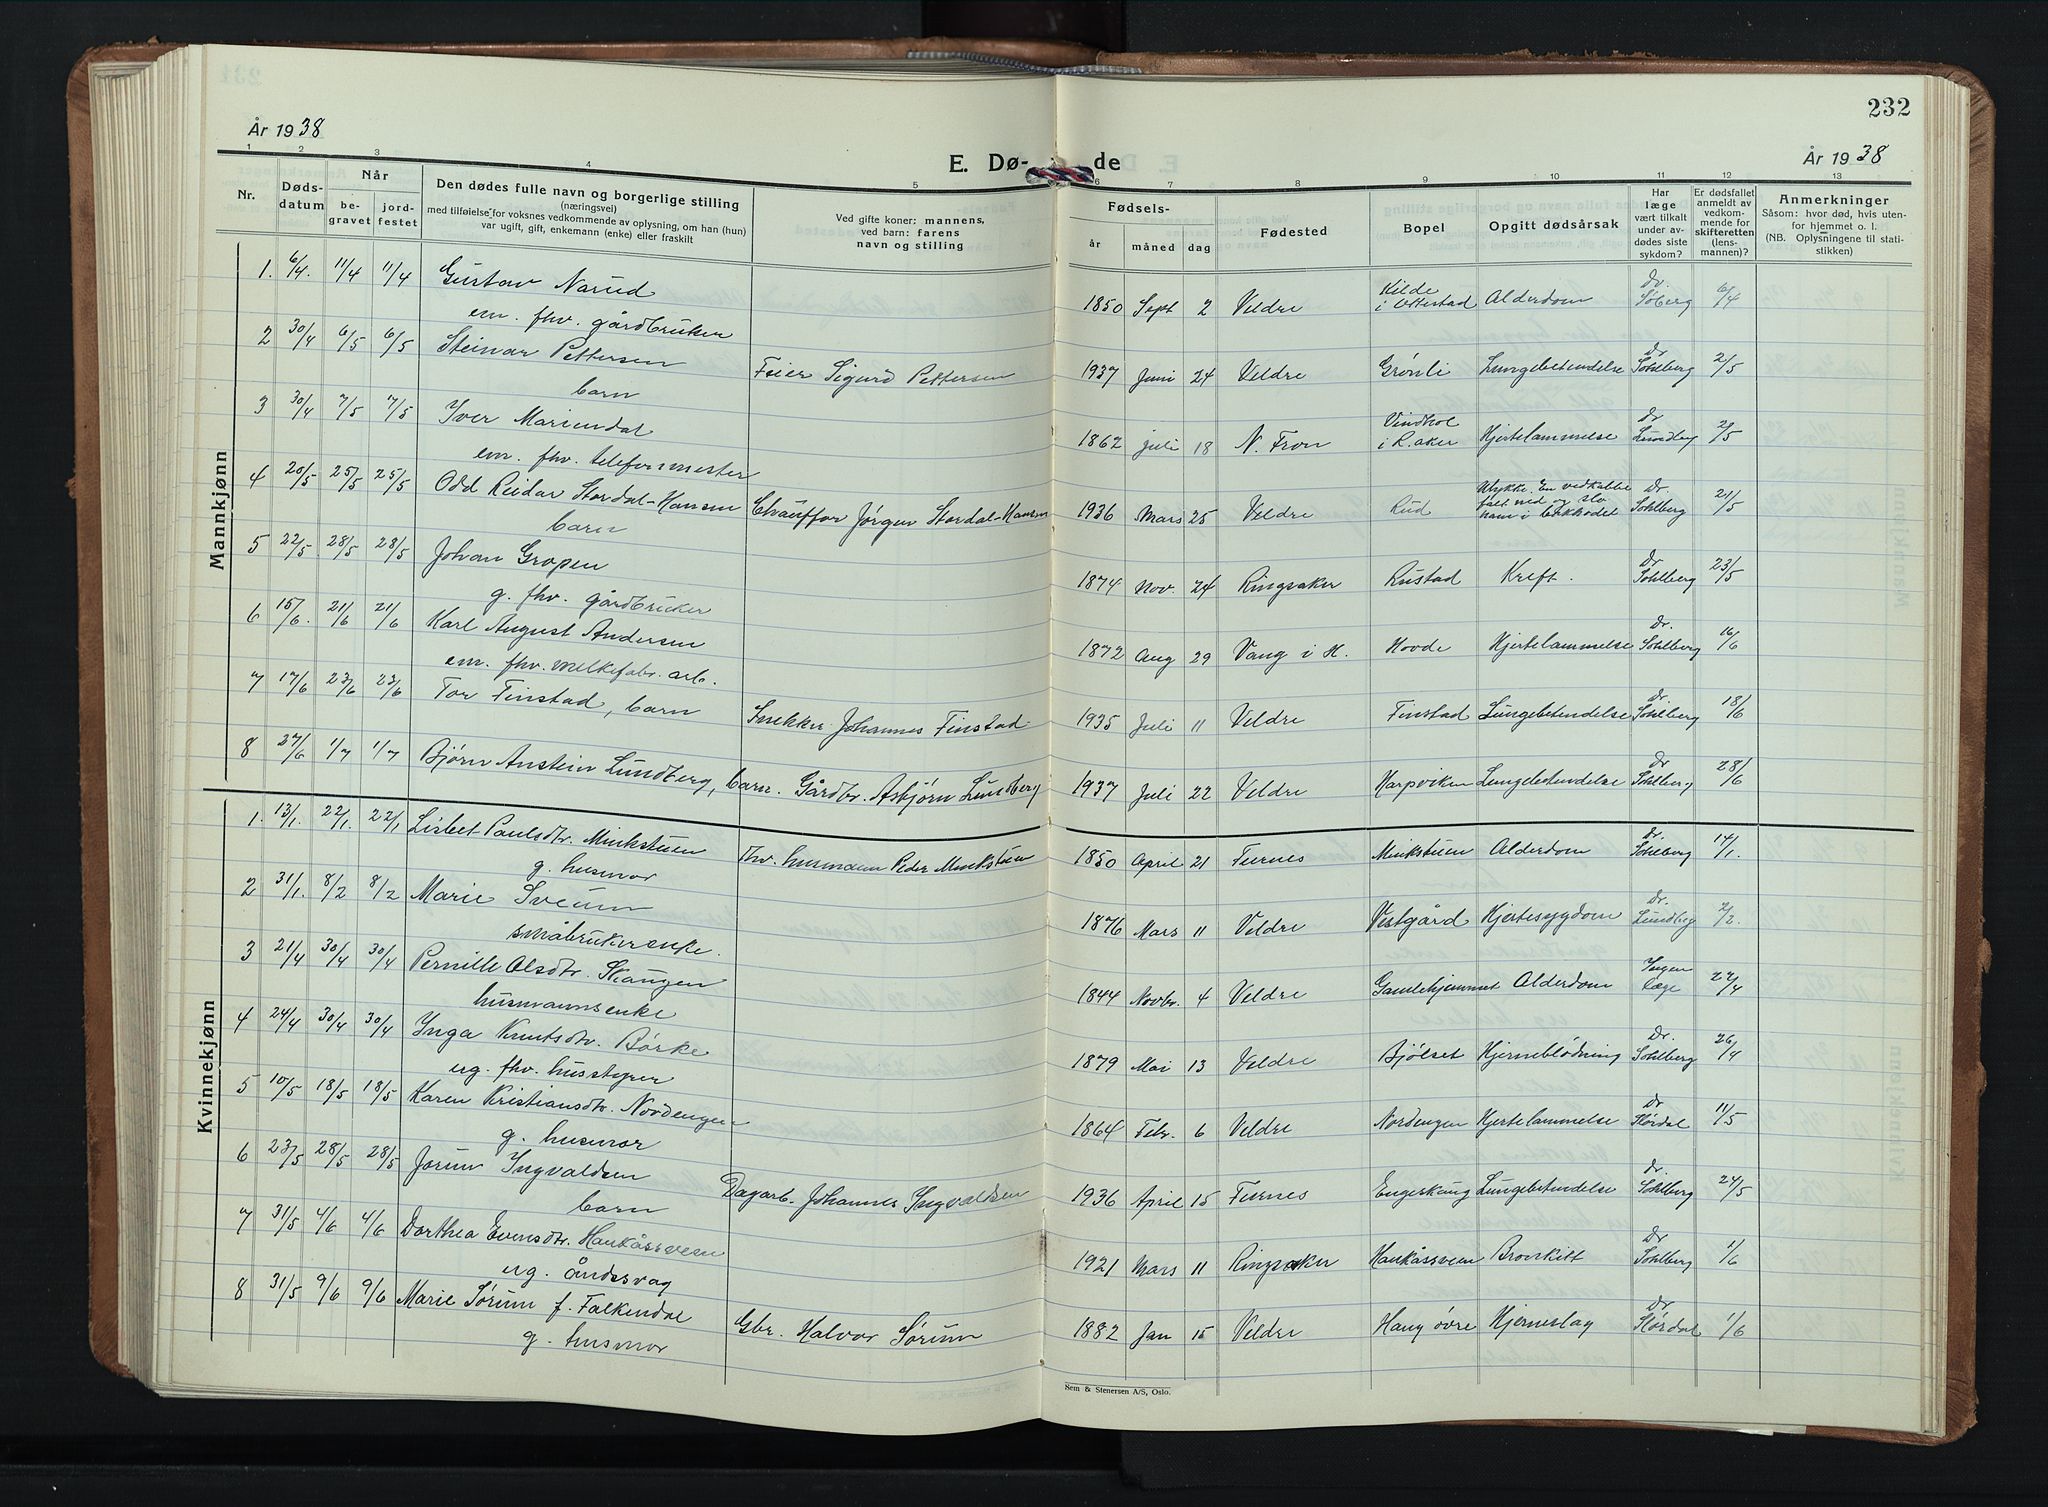 232
År 1938
År 1938
E. Dø- de
1 2 3 4 5 6 7 8 9 10 11 12 13
Nr.
Døds-
datum
Når
be-
gravet
jord-
festet
Den dødes fulle navn og borgerlige stilling
(næringsvei)
med tilføielse for voksnes vedkommende av oplysning, om han (hun)
var ugift, gift, enkemann (enke) eller fraskilt
Ved gifte koner: mannens,
ved barn: farens
navn og stilling
Fødsels-
år måned dag
Fødested
Bopel
Opgitt dødsårsak
Har
læge
vært tilkalt
under av-
dødes siste
sykdom?
Er dødsfallet
anmeldt av
vedkom-
mende for
skifteretten
(lens-
mannen)?
Anmerkninger
Såsom: hvor død, hvis uten-
for hjemmet o. l.
(NB. Oplysningene til stati-
stikken)
Mannkjønn
1. 6/4. 11/4 11/4 Gustav Narud
em. fhv. gårdbruker
1850 Sept 2 Veldre Kilde
i Ottestad Alderdom Dr.
Söberg 6/4
2 30/4 6/5 6/5 Steinar Pettersen
barn
Feier Sigurd Pettersen 1937 Juni 24 Veldre Grønli Lungebetendelse Dr
Sohlberg 2/5
3 30/4 7/5 7/5 Iver Mariendal
em. fhv. telefonmester
1862 juli 18 N. Fron Vindhol
i R.aker Hjertelammelse dr
Lundberg 2/5
4 20/5 25/5 25/5 Odd Reidar Stordal-Hansen
barn
Chauffør Jørgen Stordal-Hansen 1936 Mars 25 Veldre Rud Ulykke. En vedkabbe
falt ned og slo
ham i bakhodet Dr.
Sohlberg 21/5
5 22/5 28/5 28/5 Johan Gropen
g. fhv. gårdbruker
1874 Nov. 24 Ringsaker Rustad Kreft. Dr
Sohlberg 23/5
6 15/6. 21/6 21/6 Karl August Andersen
em. fhv. melkefabr. arb.
1872 Aug 29 Vang i H. Hovde Hjertelammelse Dr.
Sohlberg 16/6
7 17/6 23/6 23/6 Tor Finstad, barn
Snekker Johannes Finstad 1935 Juli 11 Veldre Finstad Lungebetendelse Dr
Sohlberg 18/6
8 27/6 1/7 1/7 Bjørn Anstein Lundberg, barn. Gårdbr. Asbjørn Lundberg 1937 Juli 22 Veldre Harpviken Lungebetendelse Dr
Sohlberg 28/6
Kvinnekjønn
1. 13/1. 22/1. 22/1 Lisbet Paulsdtr. Minkstuen
g. husmor
fhv. husmann Peder Minkstuen 1850 April 21 Furnes Minkstuen Alderdom Dr.
Sohlberg 14/1.
2 31/1. 8/2 8/2 Marie Sveum
småbrukerenke.
1876 Mars 11 Veldre Vestgård Hjertesygdom Dr.
Lundberg 2/2.
3 21/4 30/4 30/4 Pernille Olsdtr. Skaugen
husmannsenke
1844 Novbr. 4 Veldre Gamlehjemmet Alderdom Ingen
læge 22/4
4 24/4 30/4 30/4 Inga Knutsdtr. Börke
ug. fhv. husstyrer
1879 Mai 13 Veldre Bjølset Hjerneblödning Dr.
Sohlberg 26/4
5 10/5 18/5 18/5 Karen Kristiansdtr. Nordengen
g. husmor
1864 Febr. 6 Veldre Nordengen Hjertelammelse Dr
Størdal 11/5
6 23/5 28/5 28/5 Jorun Ingvaldsen
barn
Dagarb. Johannes Ingvaldsen 1936 April 15 Furnes Engeskaug Lungebetendelse Dr
Sohlberg 24/5
7 31/5 4/6 4/6 Dorthea Evensdtr. Haukåssveen
ug. åndssvag
1921 Mars 11 Ringsaker Haukåssveen Bronkitt Dr
Sohlberg 1/6
8 31/5 9/6 9/6 Marie Sørum f. Falkendal
g. husmor
Gbr. Halvor Sørum 1882 Jan 15 Veldre Haug øvre Hjerneslag Dr
Størdal 1/6
Sem & Stenersen A/S, Oslo.